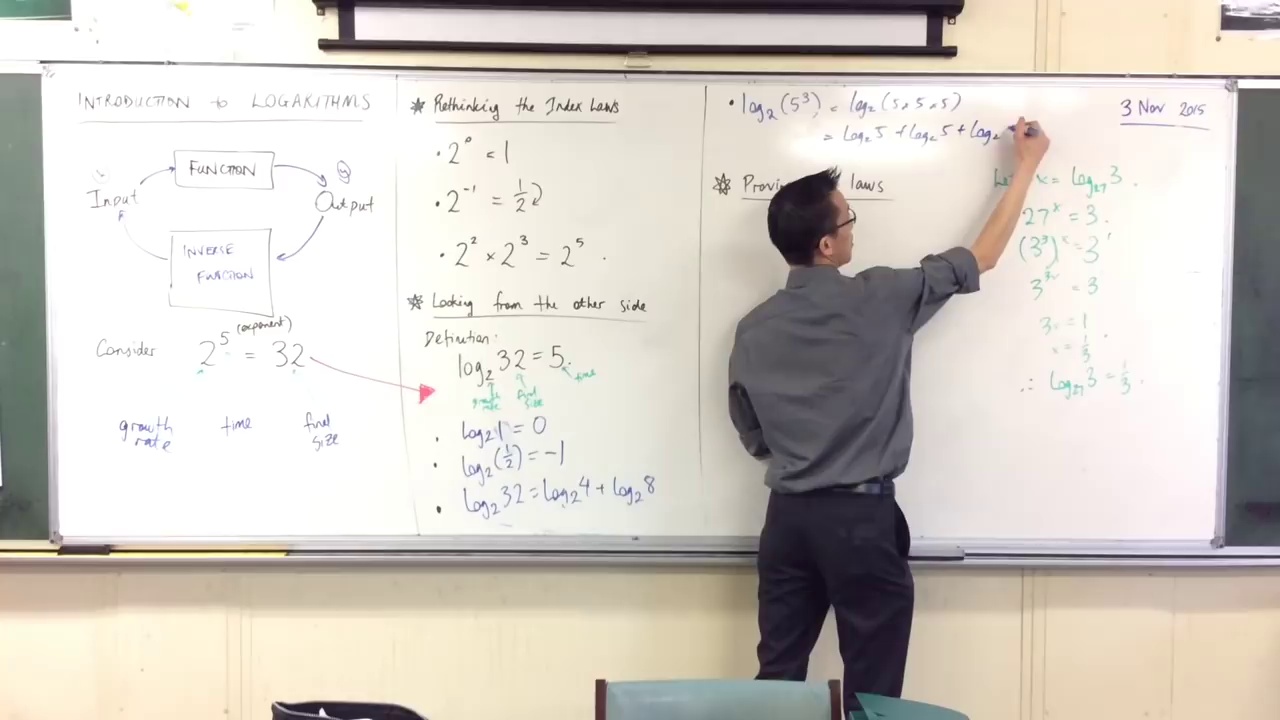 INTRODUCTION to LOGARITHMS
FUNCTION
Input
Output
INVERSE
FUNCTION
Consider 2⁵ = 32
(exponent)
growth rate
time
final size
✱ Rethinking the Index Laws
• 2⁰ = 1
• 2⁻¹ = 1/2
• 2² × 2³ = 2⁵.
✱ Looking from the other side
Definition:
log₂ 32 = 5.
growth rate
final size
time
• log₂ 1 = 0
• log₂ (1/2) = -1
• log₂ 32 = log₂ 4 + log₂ 8
• log₂ (5³) = log₂ (5 × 5 × 5)
= log₂ 5 + log₂ 5 + log₂
✱ laws
3 Nov 2015
x = log₂₇ 3.
27ˣ = 3.
(3³)ˣ = 3¹
3³ˣ = 3
3x = 1
x = 1/3.
∴ log₂₇ 3 = 1/3.